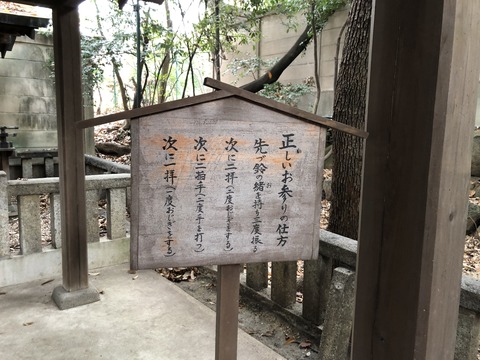 正しいお参りの仕方
先づ鈴の緒を持り三度振る
次に二拝(二度おじぎをする)
次に二拍手(二度手を打つ)
次に一拝(一度おじぎをする)